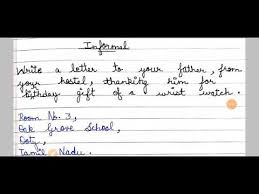 Informal
Write a letter to your father, from
your hostel, thanking him for
birthday gift of a wrist watch.
Room No. 3,
Oak Grove School,
Ooty,
Tamil Nadu.